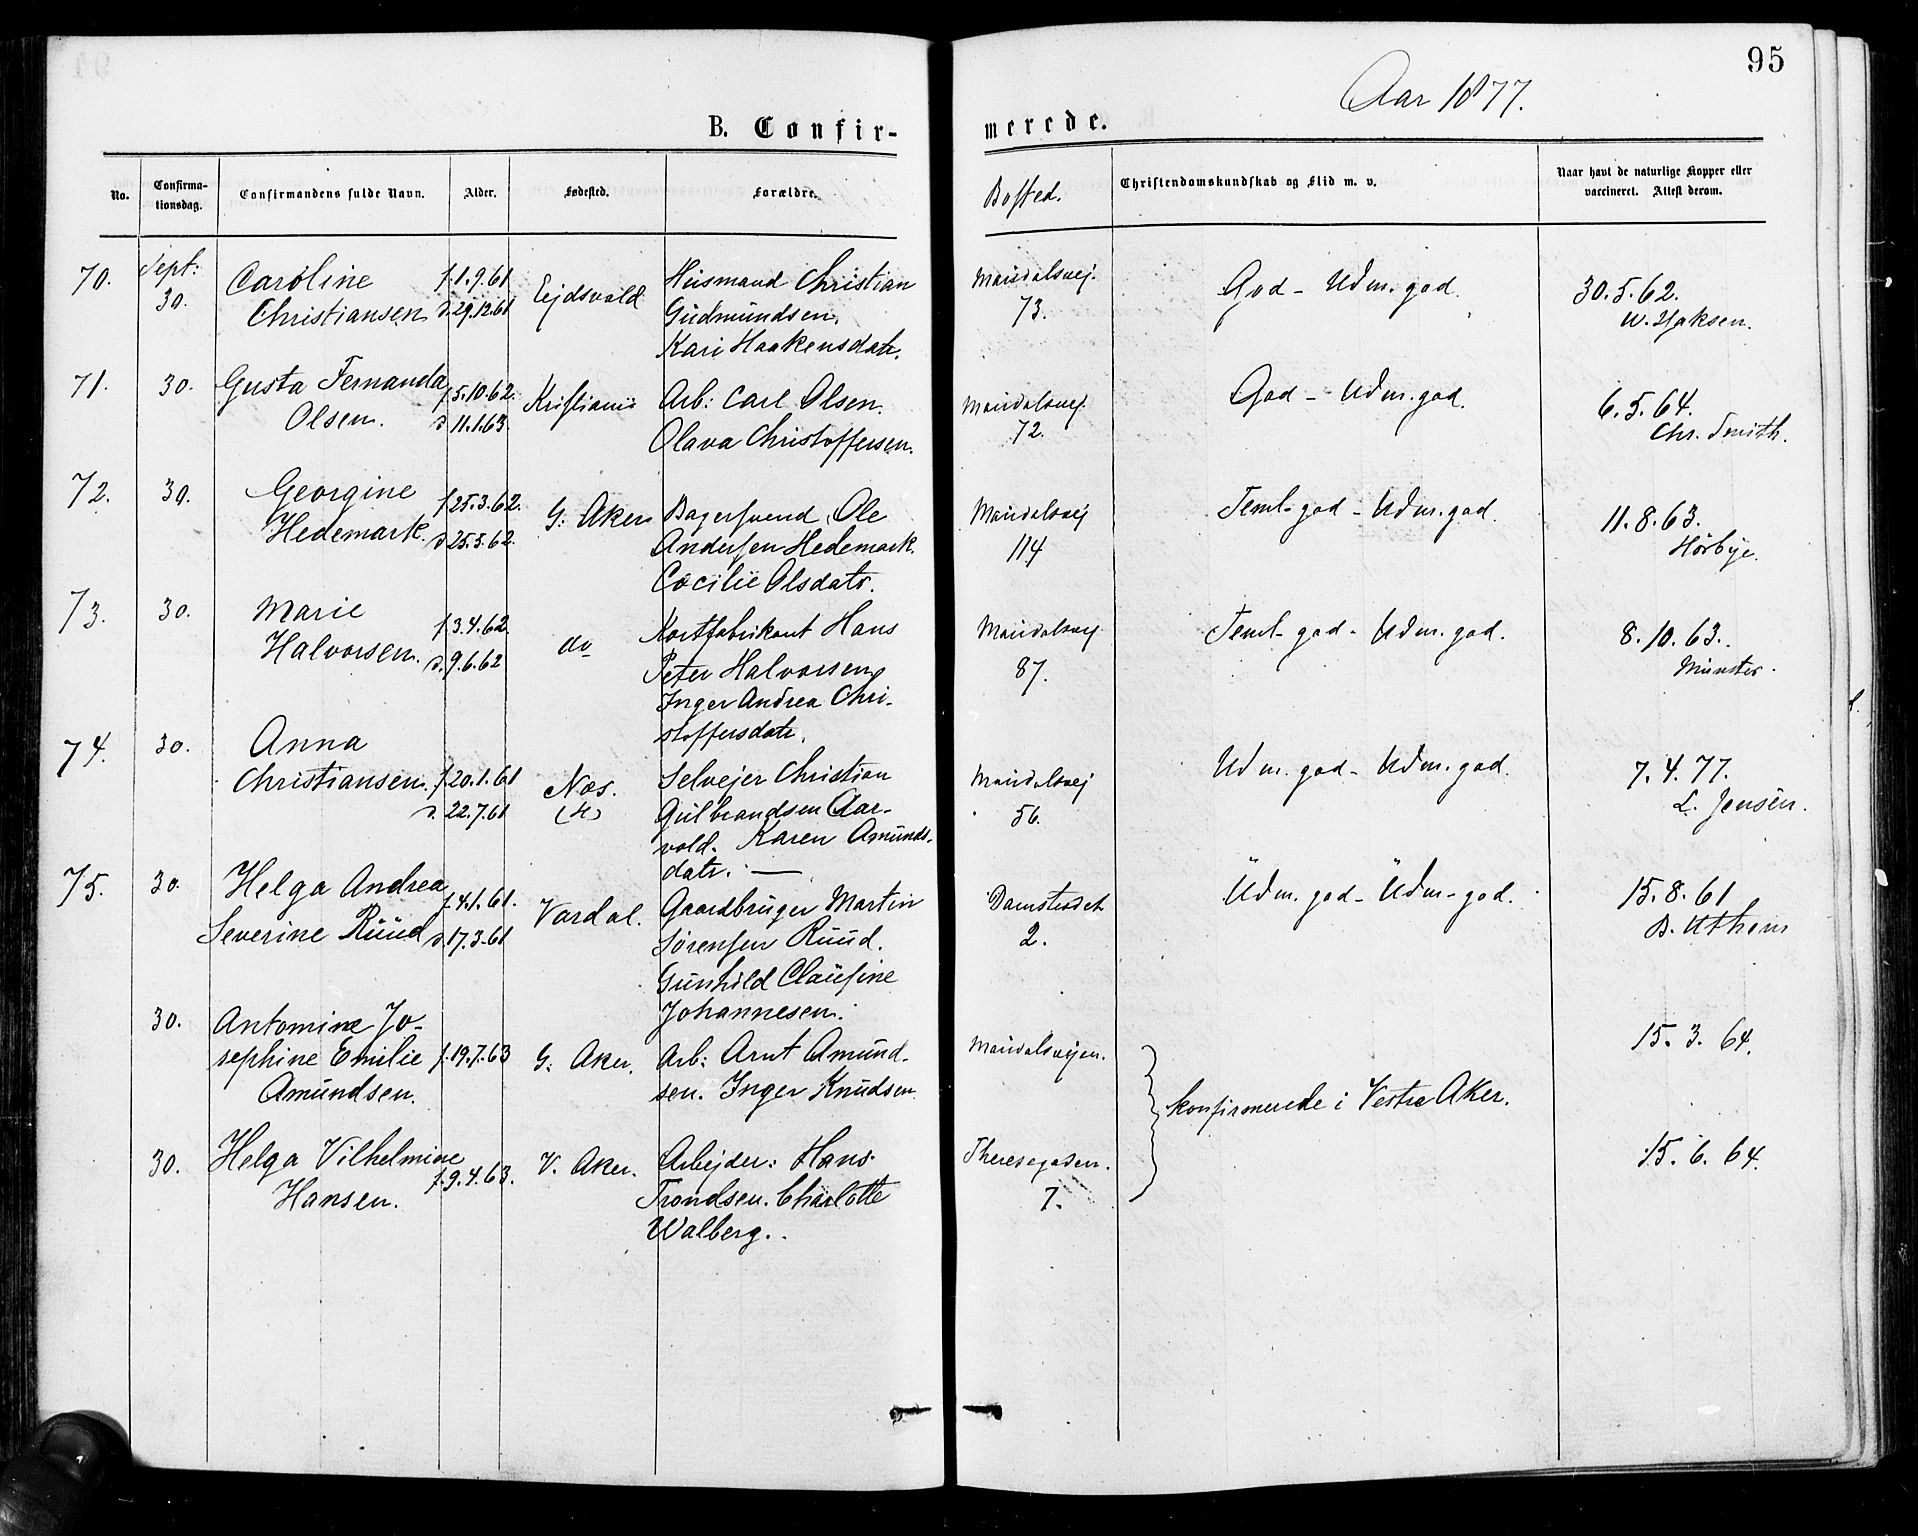 95
Aar 1877.
B. Confir-
merede.
No.
Confirma-
tionsdag.
Confirmandens fulde Navn.
Alder.
Fødested.
Forældre.
Bosted.
Christendomskundskab og Flid m. v.
Naar havt de naturlige Kopper eller
vaccineret. Attest derom.
70.
Sept:
30.
Caroline
Christiansen
f. 1.9.61
d. 29.12.61
Ejdsvold
Husmand Christian
Gudmundsen.
Kari Haakensdatr.
Maridalsvej.
73.
God - Udm. god.
30.5.62.
71.
30.
Gusta Fernanda
Olsen.
f. 5.10.62.
d. 11.1.63.
Kristiania
Arb: Carl Olsen.
Olava Christoffersen.
Maridalsvej.
72.
God - Udm. god.
6.5.64.
Chr. Smith.
72.
30.
Georgine
Hedemark.
f. 25.3.62.
d. 25.5.62.
G: Aker
Bagersvend Ole
Andersen Hedemark.
Cæcilie Olsdatr.
Maridalsvej
114
Teml. god - Udm. god.
11.8.63.
Hørbye.
73.
30.
Marie
Halvorsen.
f. 3.4.62.
d. 9.6.62
do
Kortfabrikant Hans
Peter Halvorsen
Inger Andrea Chri-
stoffersdatr.
Maridalsvej
87.
Teml. god - Udm. god.
8.10.63.
Munster.
74.
30.
Anna
Christiansen.
f. 20.1.61
d. 22.7.61
Næs.
(H)
Selvejer Christian
Gulbrandsen Aar-
vold. Karen Amunds-
datr. —
Maridalsvej
56.
Udm. god - Udm. god.
7.4.77.
L. Jensen.
75.
30.
Helga Andrea
Severine Ruud
f. 4.1.61.
d. 17.3.61
Vardal.
Gaardbruger Martin
Sørensen Ruud.
Gunhild Clausine
Johannesen.
Damstredet
2.
Udm. god - Udm. god.
15.8.61
30.
Antomine Jo-
sephine Emilie
Amundsen.
f. 19.7.63
G: Aker.
Arb: Arnt Amund-
sen. Inger Knudsen
Maridalsvejen.
konfirmerede i Vestre Aker.
15.3.64.
30.
Helga Vilhelmine
Hansen.
f. 9.4.63.
V. Aker.
Arbejder: Hans
Trondsen. Charlotte
Walberg.
Theresegaden.
7.
15.6.64.